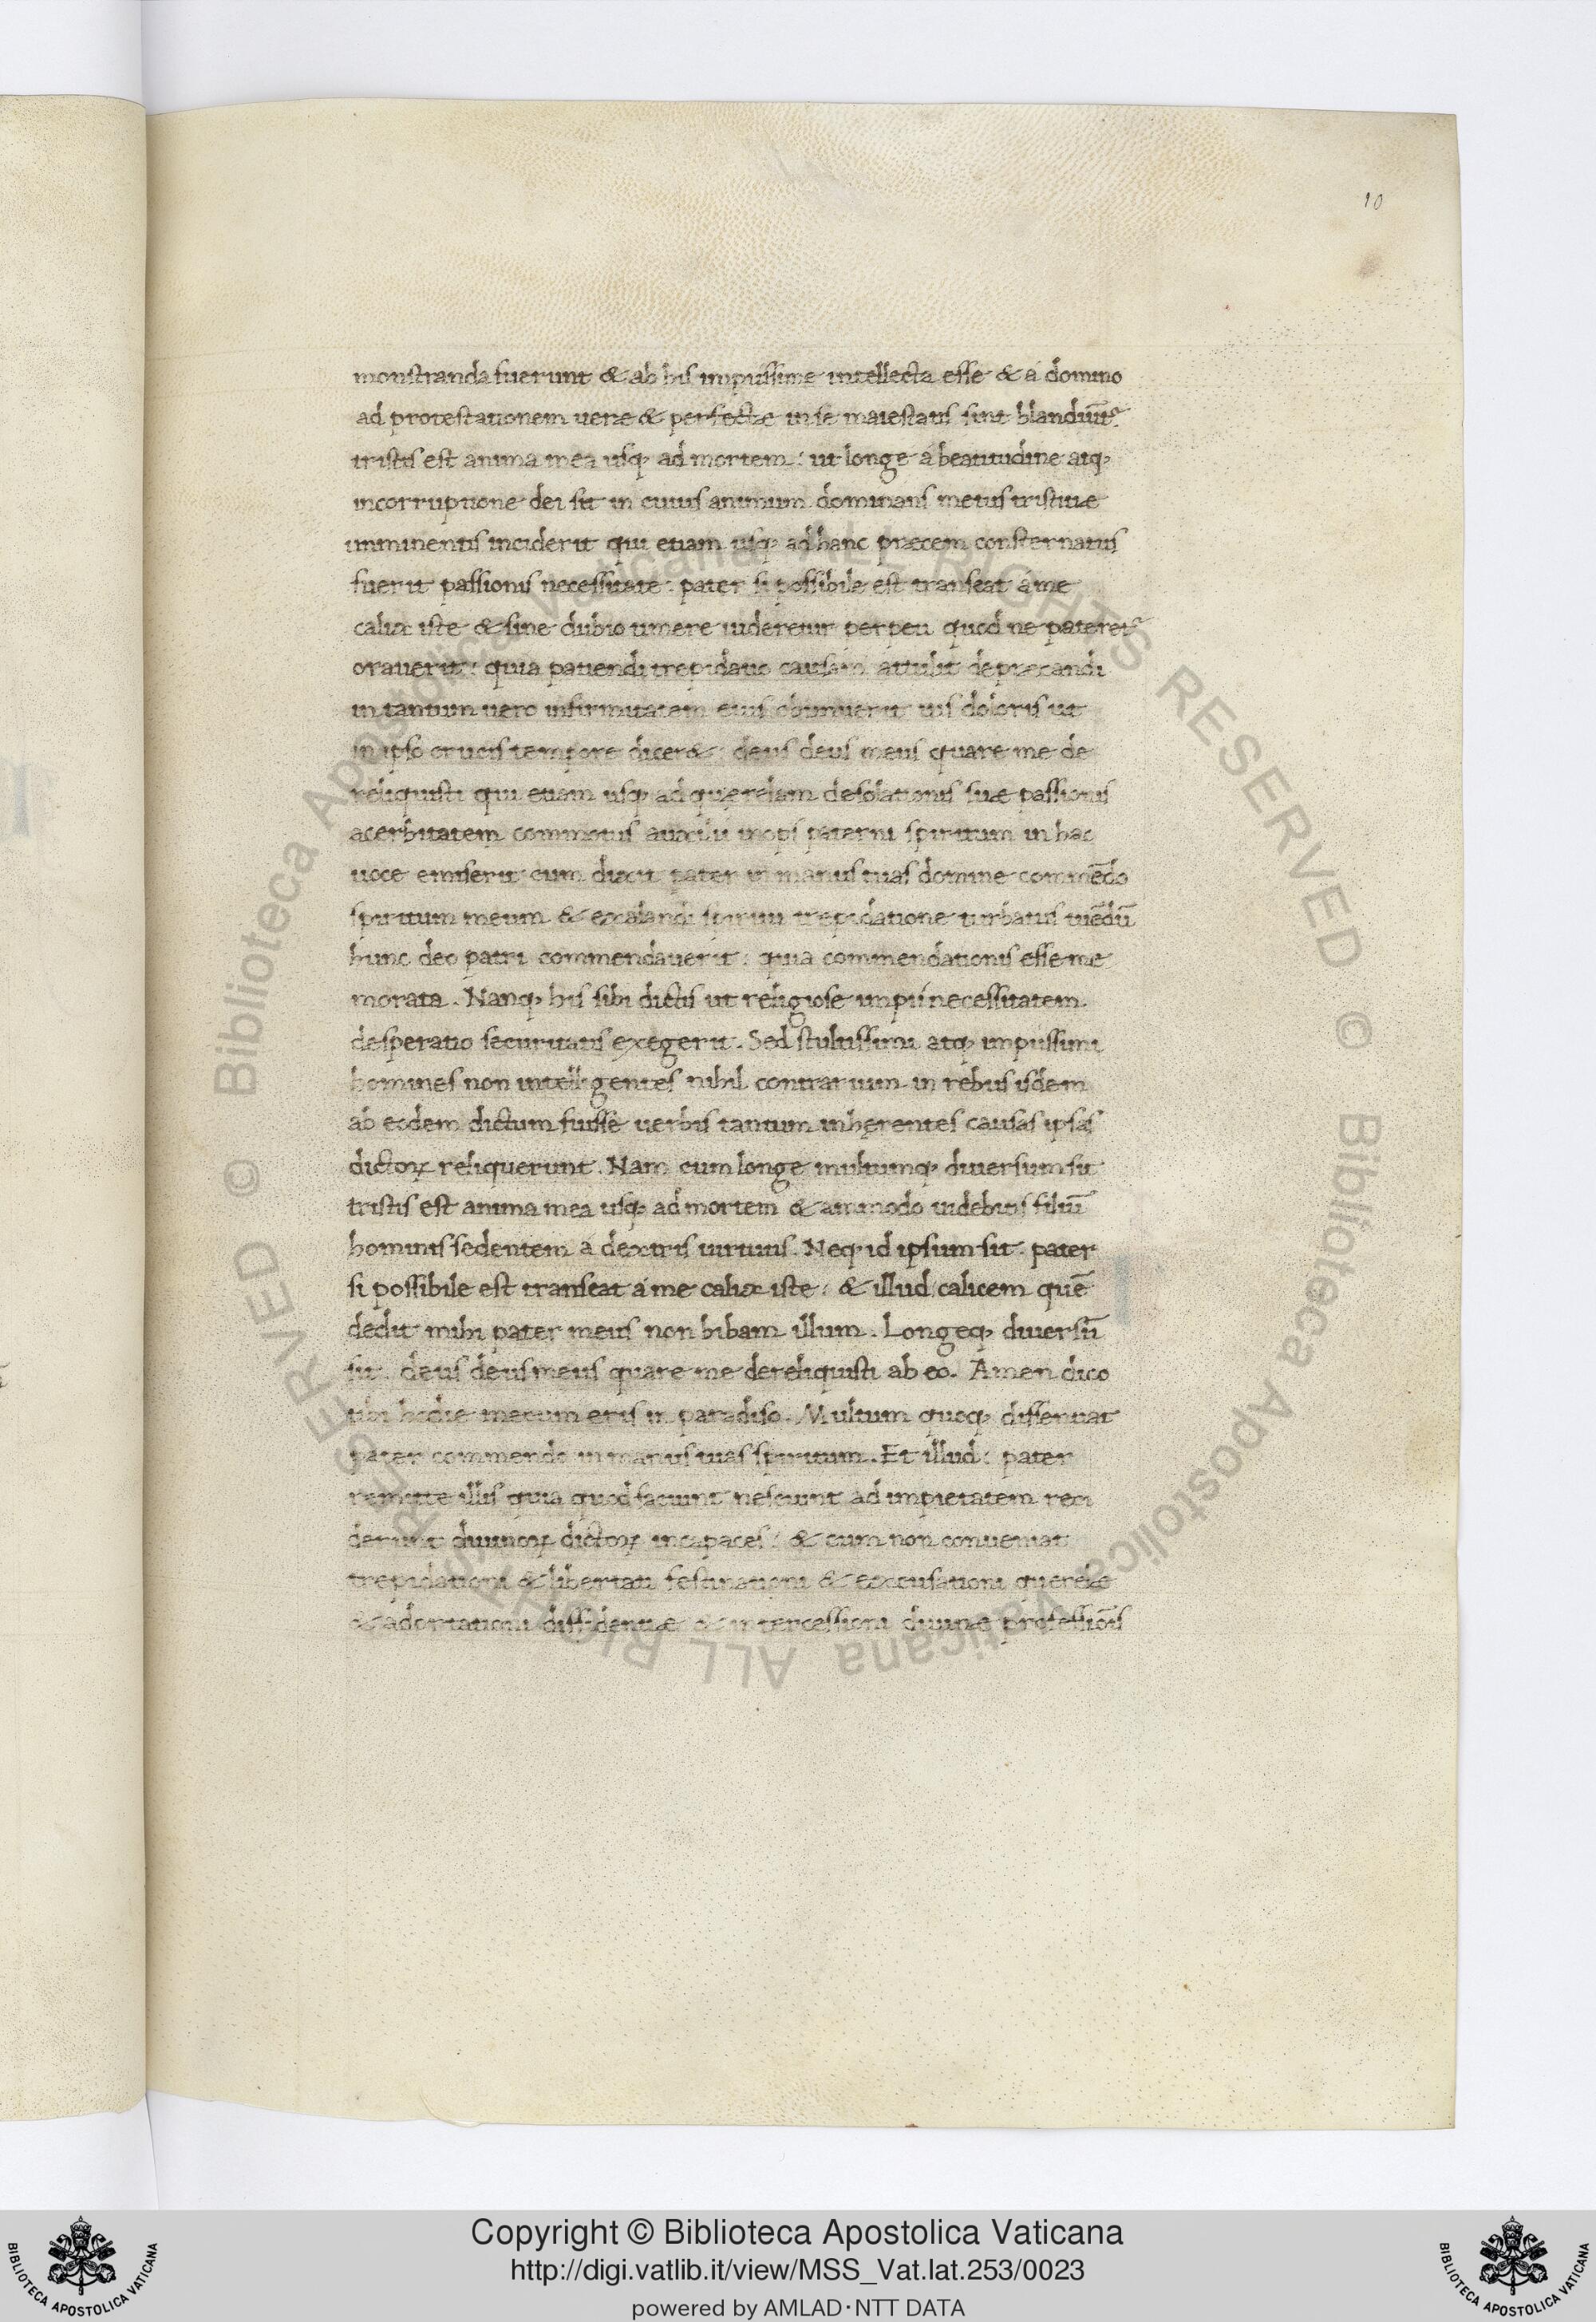 10
monstranda fuerunt & ab his impiissime intellecta esse & á domino
ad protestationem ueræ & perfectæ in se maiestatis sint
tristis est anima mea usq; ad mortem: ut longe á beatitudine atq;
incorruptione dei sit in cuius animum dominans metus tristitiæ
imminentis inciderit qui etiam usq; ad hanc præcem consternatus
fuerit passionis necessitate: pater si possibile est transeat á me
calix iste & sine dubio timere uideretur perpeti quod ne pateret᷑
orauerit: quia patiendi trepidatio causam attulit deprecandi
in tantum uero infirmitatem eius obtinuerit uis doloris ut
in ipso crucis tempore dicer&: deus deus meus quare me de
reliquisti qui etiam usq; ad quærelam desolationis suæ passionis
acerbitatem commotus auxilii inops paterni spiritum in hac
uoce emiserit cum dixit pater in manus tuas domine commēdo
spiritum meum & exalandi spiritu trepidatione turbatus
hunc deo patri commendauerit: quia commendationis esse me
morata. Nanq; his sibi dictis ut religiose impii necessitatem
desperatio securitatis exegerit. Sed stultissimi atq; impiissimi
homines non intelligentes nihil contrarium in rebus isdem
ab eodem dictum fuisse uerbis tantum inhęrentes causas ipsas
dictoꝝ reliquerunt. Nam cum longe multumq; diuersum sit
tristis est anima mea usq; ad mortem & ammodo uidebitis filiū
hominis sedentem á dextris uirtutis. Neq; id ipsum sit: pater
si possibile est transeat á me calix iste: & illud calicem quē
dedit mihi pater meus non bibam illum. Longeq; diuersū
sit: deus deus meus quare me dereliquisti ab eo. Amen dico
tibi hodie mecum eris in paradiso. Multum quoq; differuat
pater commendo in manus tuas spiritum. Et illud: pater
remitte illis quia quod faciunt nesciunt ad impietatem reci
derunt diuinoꝝ dictoꝝ incapaces: & cum non conueniat
trepidationi & libertati festinationi & excusationi querelæ
& adortationi diffidentiæ & intercessioni diuinæ professiōis
Copyright © Biblioteca Apostolica Vaticana
http://digi.vatlib.it/view/MSS_Vat.lat.253/0023
powered by AMLAD·NTT DATA
BIBLIOTECA APOSTOLICA VATICANA
BIBLIOTECA APOSTOLICA VATICANA
© Biblioteca Apostolica Vaticana ALL RIGHTS RESERVED © Biblioteca Apostolica Vaticana ALL RIGHTS RESERVED